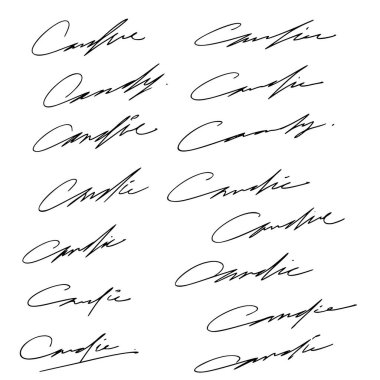 Candie Candie
Candy. Candie
Candie Candy.
Candie Candie
Candie
Candie
Candie Candie
Candie
Candie
Candie